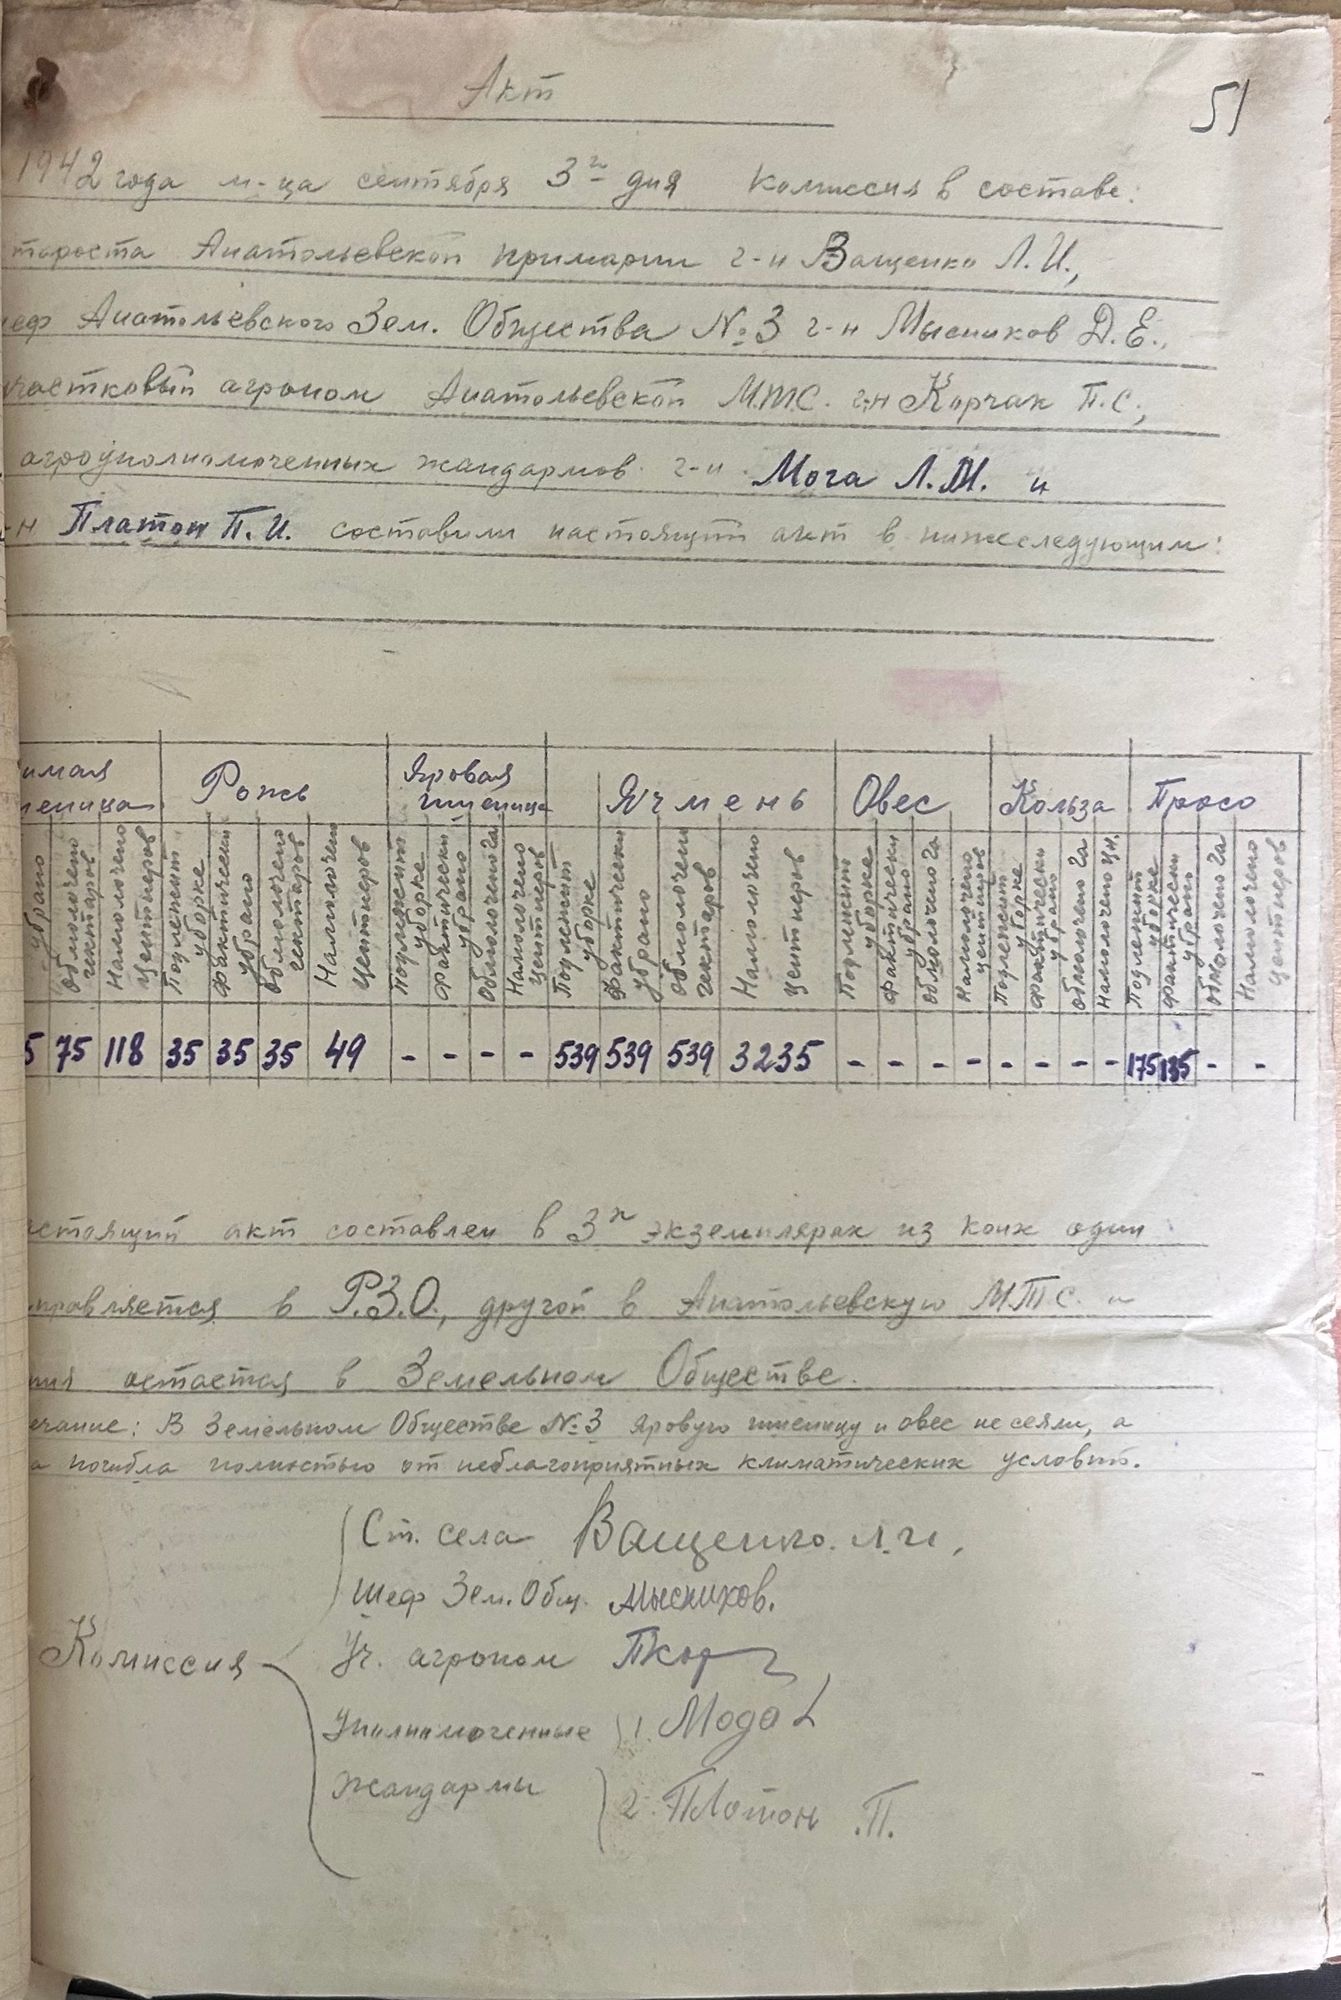 Акт
51
1942 года м-ца сентября 3го дня Комиссия в составе:
тароста Анатольевской примарии г-н Ващенко Л.И.,
еф Анатольевского Зем. Общества №3 г-н Мысников Д.Е.,
частковый агроном Анатольевской М.Т.С. г-н Корчак П.С.,
агроуполномоченных жандармов г-н Мога Л.М. и
-н Платон П.И. составили настоящий акт в нижеследующим:
имая еница Рожь Яровая пшеница Ячмень Овес Кольза Просо
убрано Обмолочено гектаров Намолочено Центнеров Подлежит уборке Фактически убрано Обмолочено гектаров Намолочено Центнеров Подлежит уборке Фактически убрано Обмолочено га Намолочено Центнеров Подлежит уборке Фактически убрано Обмолочено гектаров Намолочено Центнеров Подлежит уборке Фактически убрано Обмолочено га Намолочено центнеров Подлежит уборке Фактически убрано Обмолочено га Намолочено цн. Подлежит уборке Фактически убрано Обмолочено га Намолочено Центнеров
5 75 118 35 35 35 49 - - - - 539 539 539 3235 - - - - - - - - 175 135 - -
астоящий акт составлен в 3х экземплярах из коих один
аправляется в Р.З.О., другой в Анатольевскую М.Т.С. и
остается в Земельном Обществе.
ечание: В Земельном Обществе №3 яровую пшеницу и овес не сеяли, а
а погибла полностью от неблагоприятных климатических условий.
Ст. села Ващенко. Л.И.
Шеф Зем. Общ. Мысников.
Комиссия Уч. агроном ПКор
Уполномоченные 1. Мога L
Жандармы 2. Платон .П.